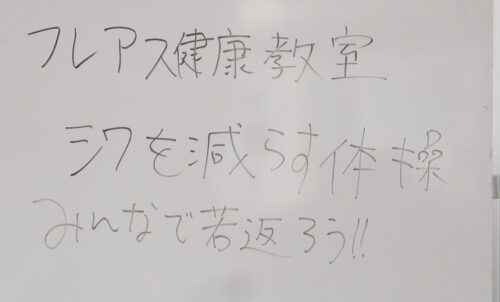 フレアス健康教室
シワを減らす体操
みんなで若返ろう!!